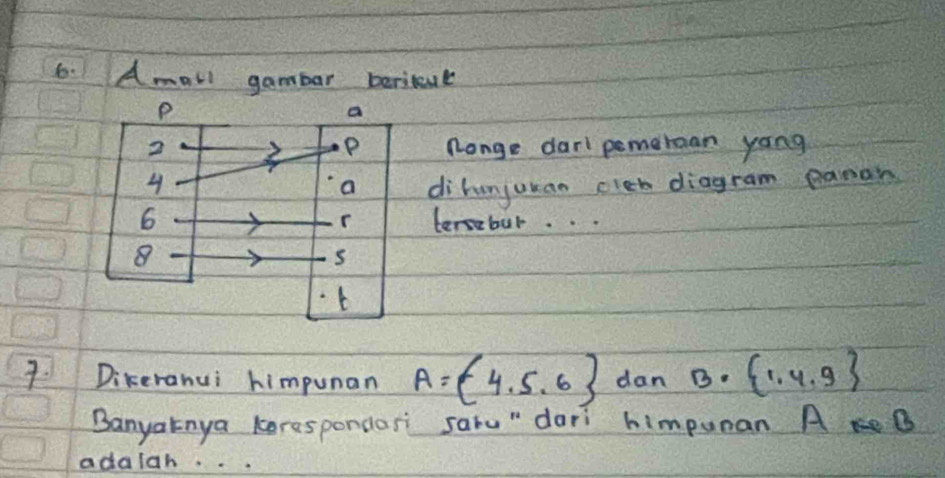 6. Amati gambar berikut
P a
2 p
4 a
6 r
8 s
t
Range dari pemetaan yang
ditunjukan oleh diagram panah
tersebut . . .
7. Diketahui himpunan A = {4.5.6} dan B = {1.4.9}
Banyaknya korespondasi satu" dari himpunan A ke B
adalah . . .